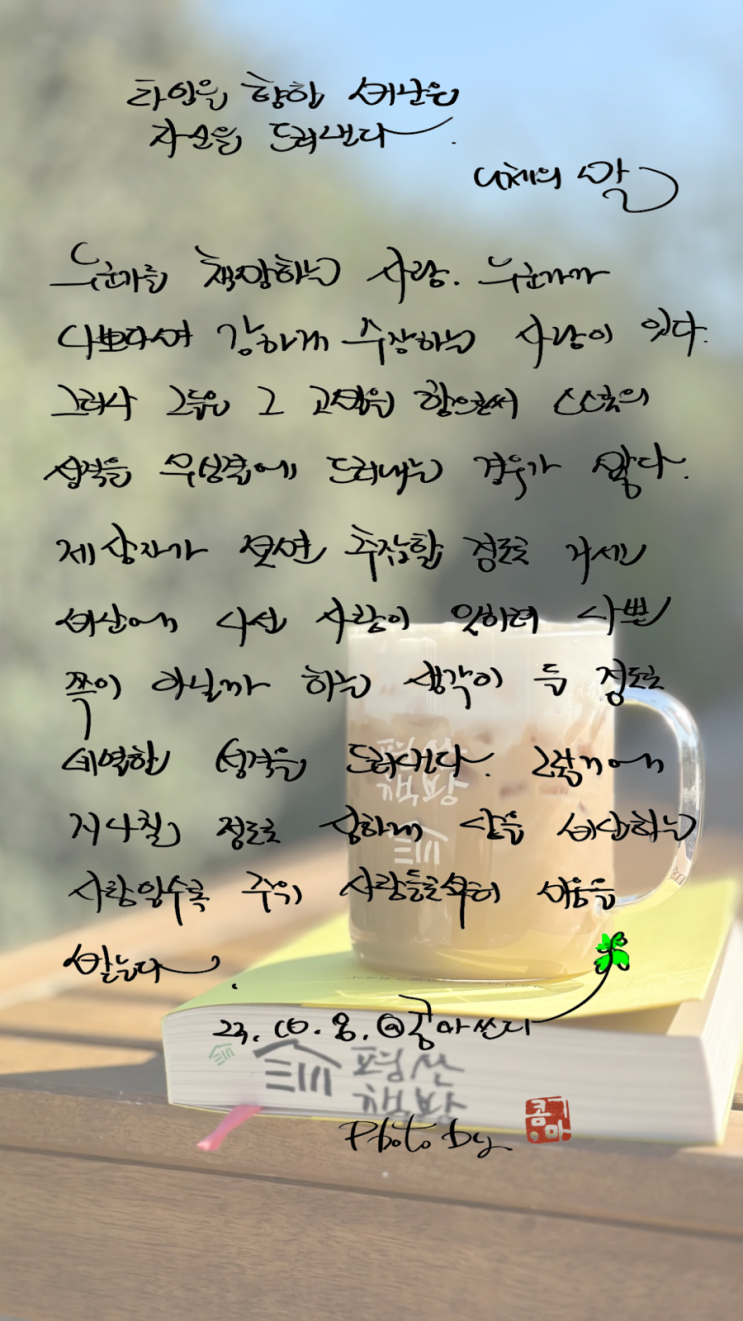 타인을 향한 비난은
자신을 드러낸다.
니체의 말
누군가를 책망하는 사람. 누군가가
나쁘다며 강하게 주장하는 사람이 있다.
그러나 그들은 그 고백을 함으로써 스스로의
성격을 무심결에 드러내는 경우가 많다.
제삼자가 보면 추잡할 정도로 거센
비난에 나선 사람이 오히려 나쁜
쪽이 아닐까 하는 생각이 들 정도로
비열한 성격을 드러낸다. 그렇기에
지나칠 정도로 심하게 남을 비난하는
사람일수록 주위 사람들로부터 미움을
받는다.
23. 10. 8. @콩마쓰다
평산
책방
평산
책방
Photo by
콩
마